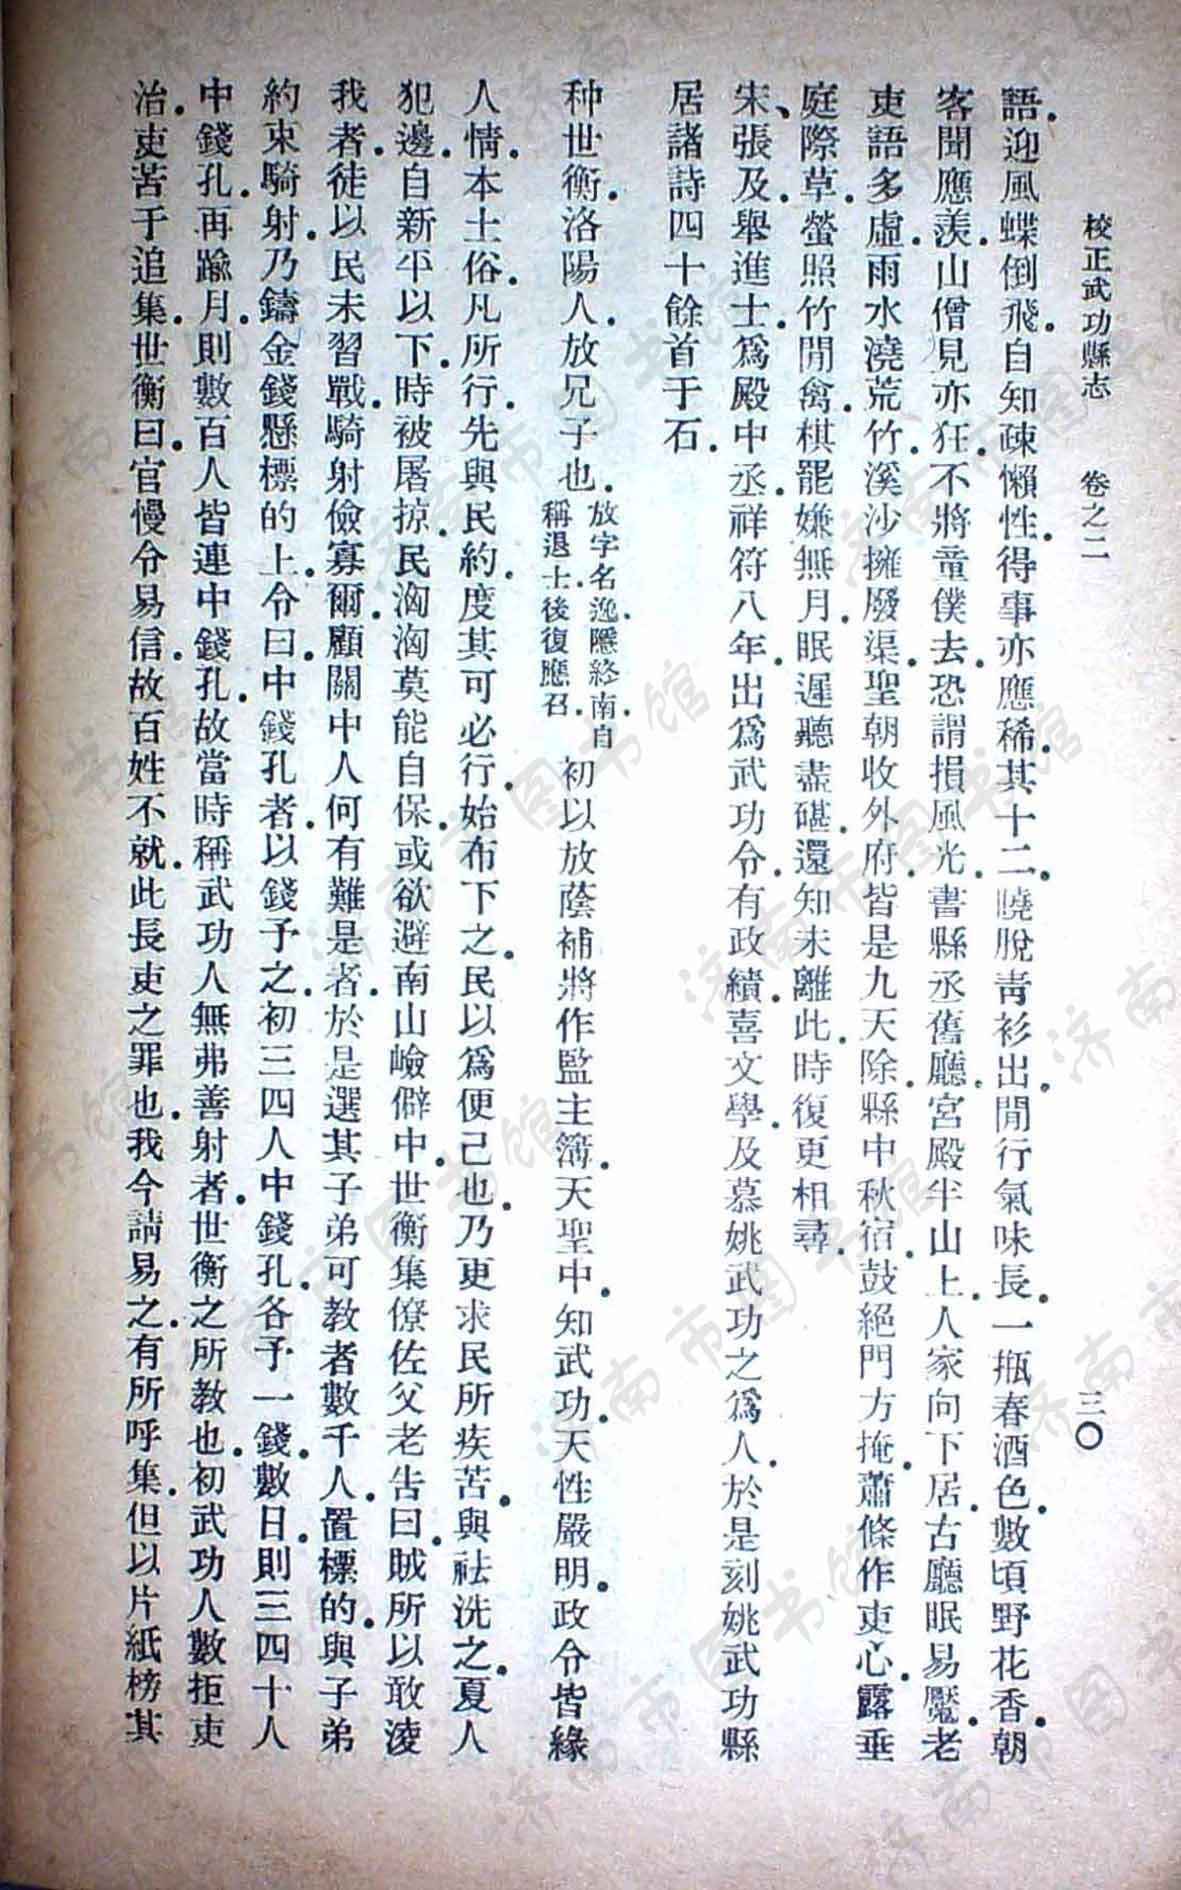 校正武功縣志　卷之二　三〇
語．迎風蝶倒飛．自知疎懶性．得事亦應稀．其十二．曉脫靑衫出．閒行氣味長．一瓶春酒色．數頃野花香．朝
客聞應羨．山僧見亦狂．不將童僕去．恐謂損風光．書縣丞舊廳．宮殿半山上．人家向下居．古廳眠易魘．老
吏語多虛．雨水澆荒竹．溪沙擁廢渠．聖朝收外府．皆是九天除．縣中秋宿．鼓絕門方掩．蕭條作吏心．露垂
庭際草．螢照竹閒禽．棋罷嫌無月．眠遲聽盡碪．還知未離此．時復更相尋．
宋、張及．舉進士．爲殿中丞．祥符八年．出爲武功令．有政績．喜文學．及慕姚武功之爲人．於是刻姚武功縣
居諸詩四十餘首于石．
种世衡．洛陽人．放兄子也．放字名逸．隱終南．自
稱退士．後復應召．初以放蔭補將作監主簿．天聖中．知武功．天性嚴明．政令皆緣
人情．本土俗．凡所行．先與民約．度其可必行．始布下之．民以爲便己也．乃更求民所疾苦．與祛洗之．夏人
犯邊．自新平以下．時被屠掠．民洶洶莫能自保．或欲避南山嶮僻中．世衡集僚佐父老告曰．賊所以敢淩
我者．徒以民未習戰．騎射儉寡爾．顧關中人何有難是者．於是選其子弟可教者數千人．置標的．與子弟
約束騎射．乃鑄金錢懸標的上．令曰．中錢孔者．以錢予之．初三四人中錢孔．各予一錢．數日．則三四十人
中錢孔．再踰月．則數百人皆連中錢孔．故當時稱武功人無弗善射者．世衡之所教也．初武功人數拒吏
治．吏苦于追集．世衡曰．官慢令易信．故百姓不就．此長吏之罪也．我今請易之．有所呼集．但以片紙榜其
济南市图书馆